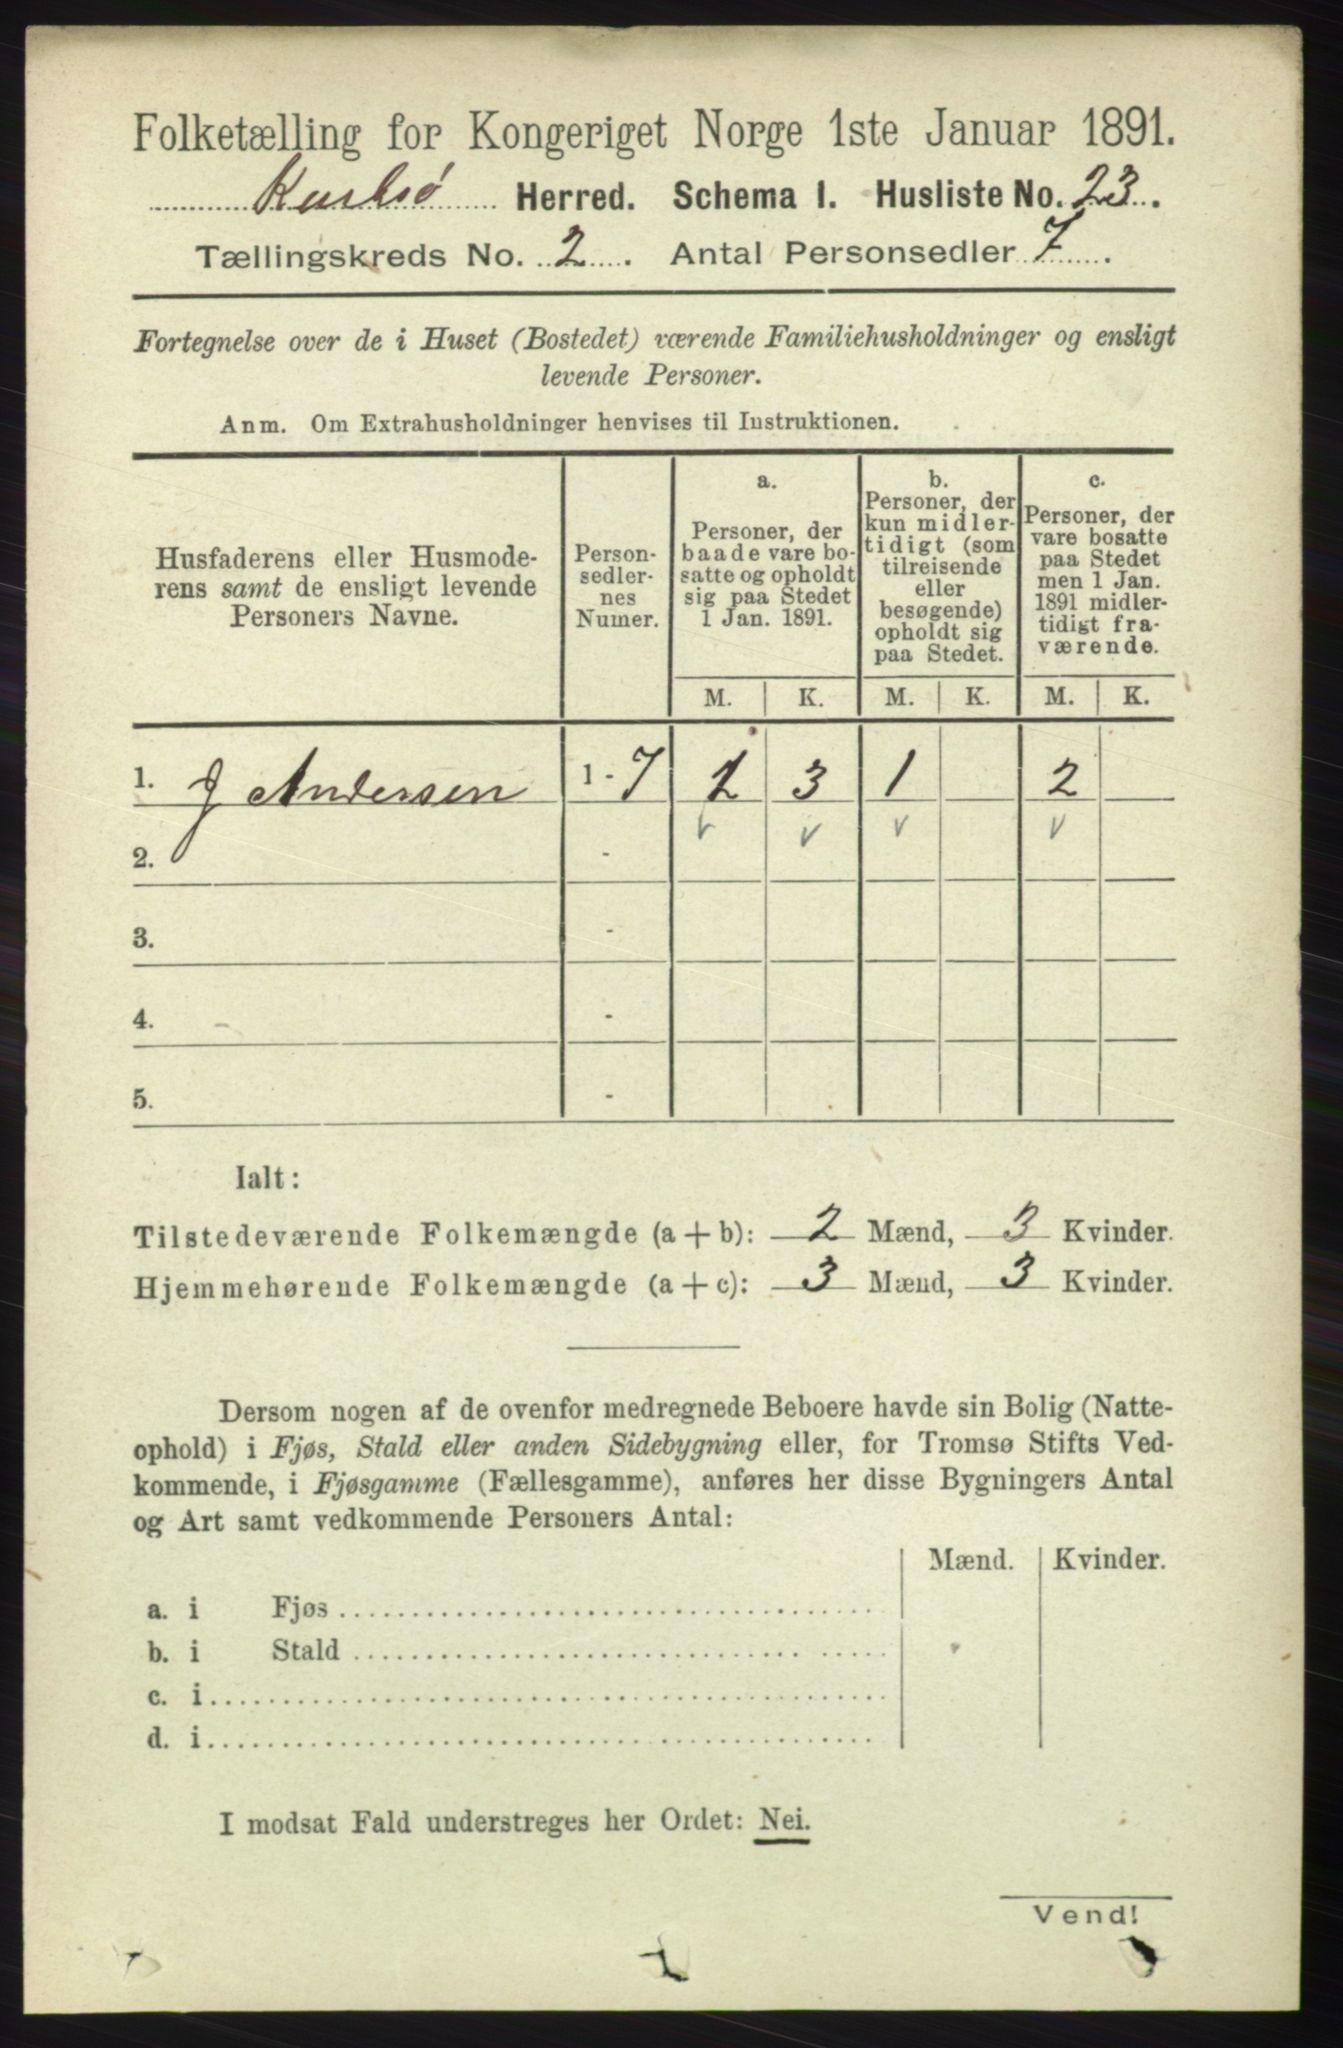 Folketælling for Kongeriget Norge 1ste Januar 1891.
Karlsø Herred. Schema I. Husliste No. 23.
Tællingskreds No. 2. Antal Personsedler 7.
Fortegnelse over de i Huset (Bostedet) værende Familiehusholdninger og ensligt
levende Personer.
Anm. Om Extrahusholdninger henvises til Instruktionen.
Husfaderens eller Husmode-
rens samt de ensligt levende
Personers Navne.
Person-
sedler-
nes
Numer.
a.
Personer, der
baade vare bo-
satte og opholdt
sig paa Stedet
1 Jan. 1891.
b.
Personer, der
kun midler-
tidigt (som
tilreisende
eller
besøgende)
opholdt sig
paa Stedet.
c.
Personer, der
vare bosatte
paa Stedet
men 1 Jan.
1891 midler-
tidigt fra-
værende.
M. K. M. K. M. K.
1. J Andersen 1-7 1 3 1 2
2. -
3. -
4. -
5. -
Ialt:
Tilstedeværende Folkemængde (a + b): 2 Mænd, 3 Kvinder.
Hjemmehørende Folkemængde (a + c): 3 Mænd, 3 Kvinder.
Dersom nogen af de ovenfor medregnede Beboere havde sin Bolig (Natte-
ophold) i Fjøs, Stald eller anden Sidebygning eller, for Tromsø Stifts Ved-
kommende, i Fjøsgamme (Fællesgamme), anføres her disse Bygningers Antal
og Art samt vedkommende Personers Antal:
Mænd. Kvinder.
a. i Fjøs
b. i Stald
c. i
d. i
I modsat Fald understreges her Ordet: Nei.
Vend!